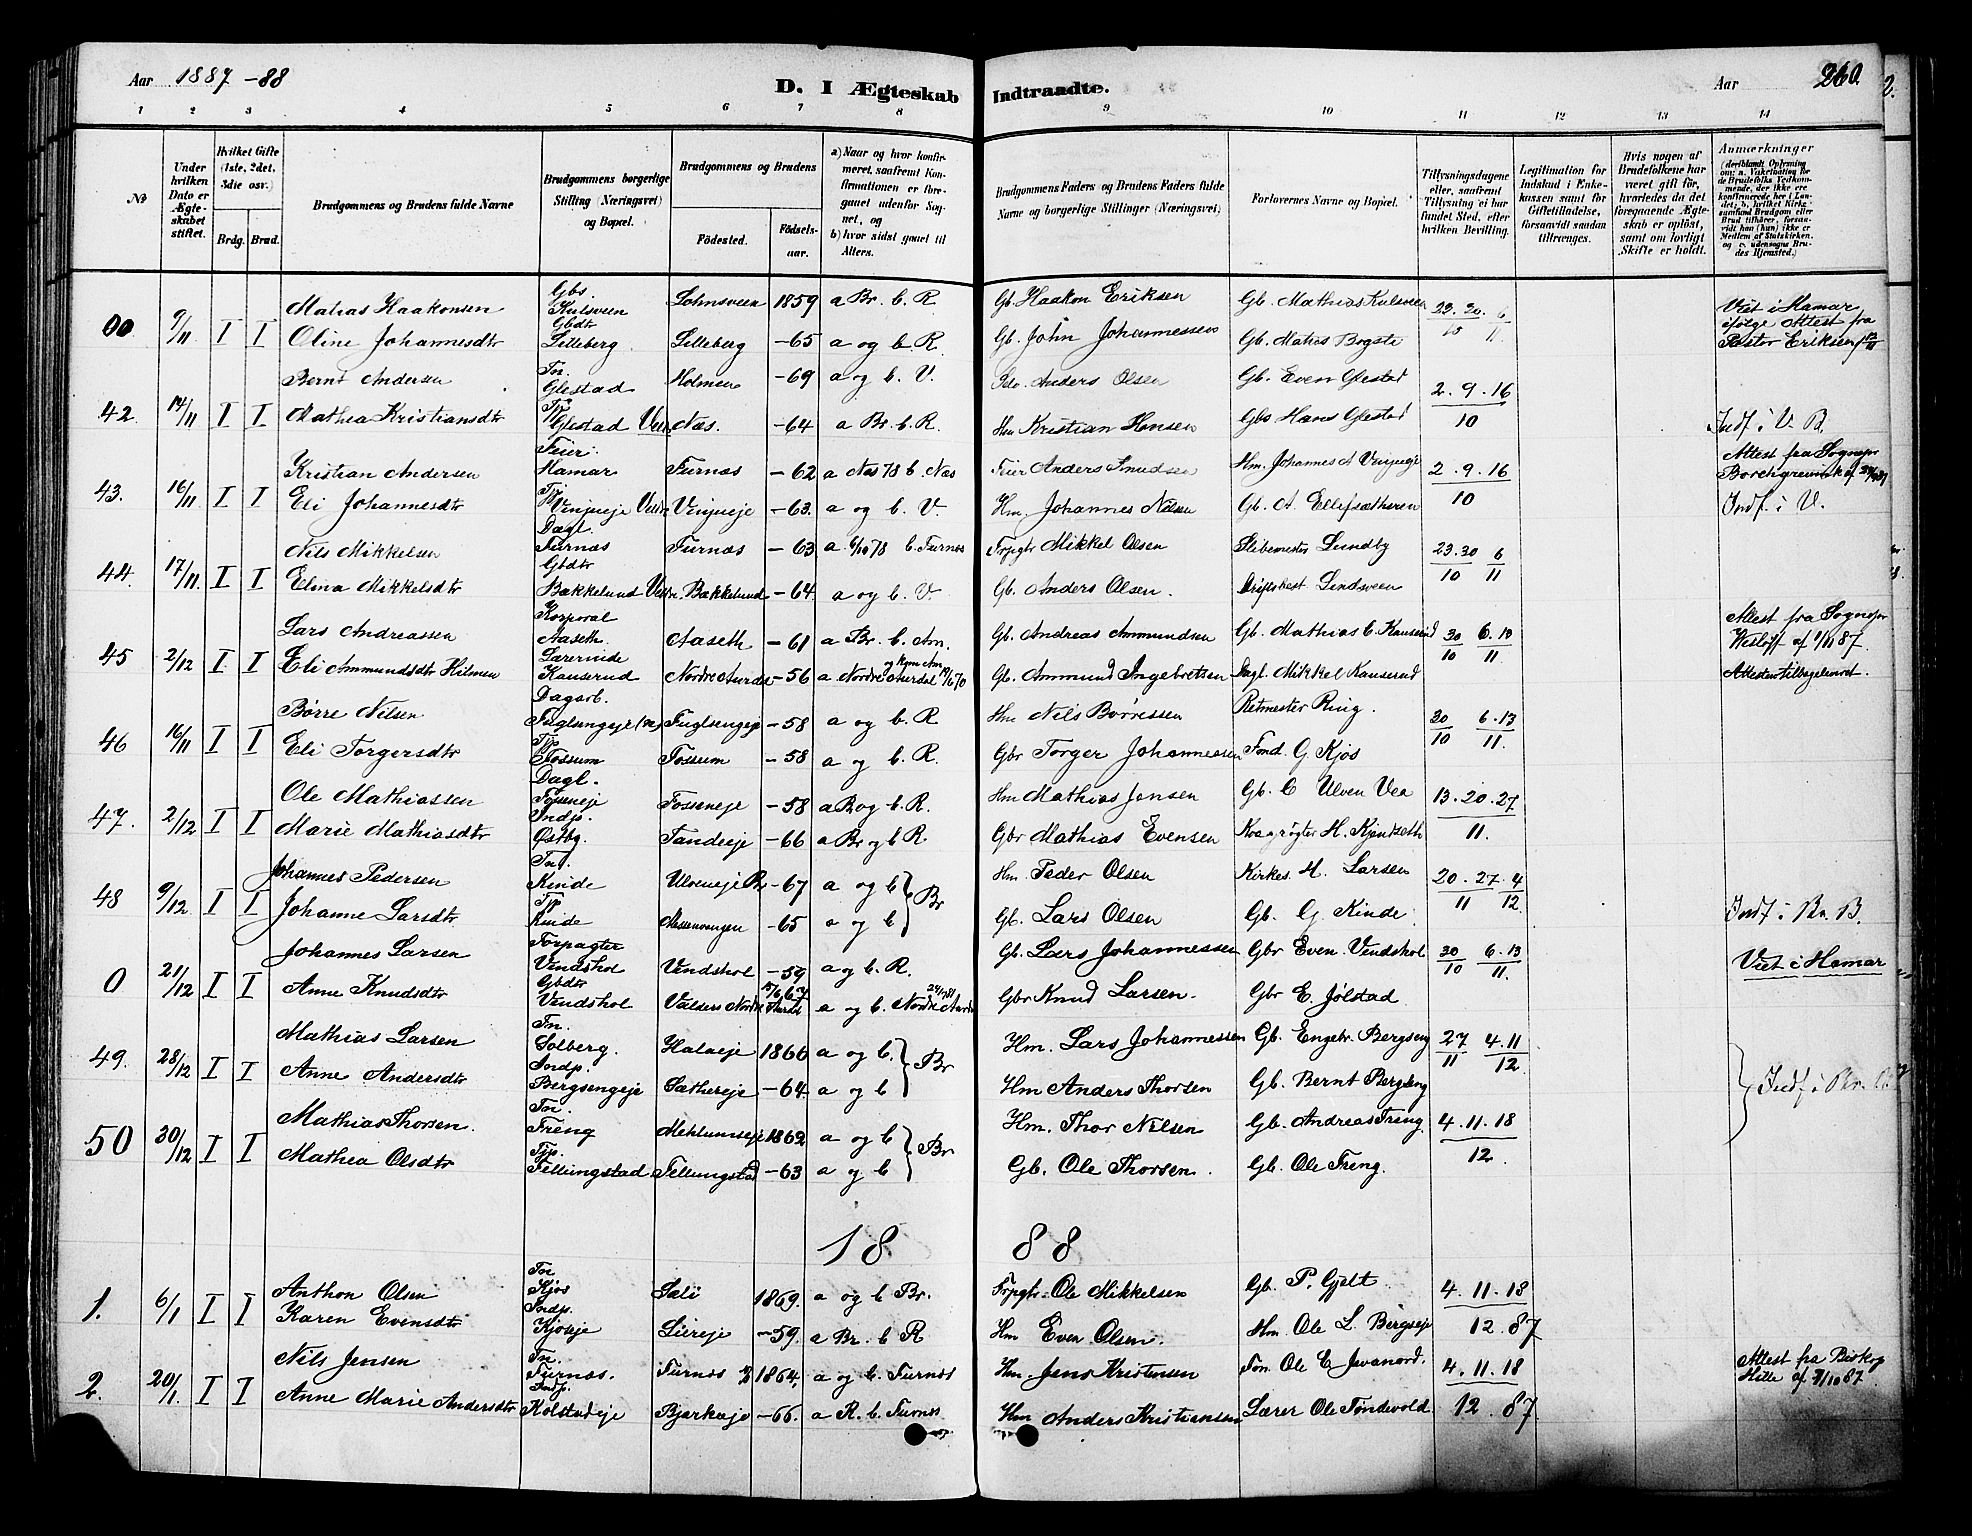 Aar 1887-88 D. I Ægteskab Indtraadte. Aar 260.
1 2 3 4 5 6 7 8 9 10 11 12 13 14
№ Under hvilken Dato er Ægteskabet stiftet. Hvilket Gifte (1ste, 2det, 3die osv.) Brdg. Brud. Brudgommens og Brudens fulde Navne Brudgommens borgerlige Stilling (Næringsvei) og Bopæl. Brudgommens og Brudens Födested. Födselsaar. a) Naar og hvor konfirmeret, saafremt Konfirmationen er foregaaet udenfor Sognet, og b) hvor sidst gaaet til Alters. Brudgommens Faders og Brudens Faders fulde Navne og borgerlige Stillinger (Næringsvei) Forlovernes Navne og Bopæl. Tillysningsdagene eller, saafremt Tillysning ei har fundet Sted, efter hvilken Bevilling. Legitimation for Indskud i Enkekassen samt for Giftetilladelse, forsaavidt saadan tiltrænges. Hvis nogen af Brudefolkene har været gift för, hvorledes da det foregaaende Ægteskab er oplöst, samt om lovligt Skifte er holdt. Anmerkninger
00 9/11 I I Mathias Haakonsen Gbs. Kulsveen Lohnsveen 1859 a Br. b. R. Gb. Haakon Eriksen Gb. Mathias Kulsveen 23. 30. 6 Viet i Hamar
Oline Johannesdtr Gbdtr Lilleberg Lilleberg -65 a og b. R. Gb. John Johannessen Gb. Matias Bogste 10 11 ifølge Attest fra Pastor Eriksen
42. 14/11 I I Bernt Andersen Tn. Glestad Holmen -69 a og b. V. Anders Olsen Gb. Even Glestad 2. 9. 16
Mathea Kristiansdtr Tj. Glestad Næs. -64 a Br. b. R. Hm Kristian Hansen Gbs Hans Glestad 10 Indf i V. B.
43. 16/11 I I Kristian Andersen Feier Hamar Furnæs -62 a Næs 78 b. Næs Feier Anders Knudsen Hm. Johannes A Vinjueje 2. 9. 16 Attest fra Sognepr Borchgrevink af
Eli Johannesdtr Tj. Vinjueje Vinjueje -63. a og b. V. Hm. Johannes Nilsen Gb. A. Ellefsæthren 10 Indf. i V.
44. 17/11. I I Nils Mikkelsen Dagl. Furnæs Furnæs -63 a. 6/10 78 b. Furnæs Frpgtr Mikkel Olsen Slibemester Lundby 23.30 6
Elina Mikkelsdtr Gbdtr Bækkelund Bækkelund -64. a og b. V. Gb. Anders Olsen. Driftsbest Lindsveen 10 11
45 2/12 I I Lars Andreassen Korporal Aaseth Aaseth -61 a Br. b. Am. Gb. Andreas Ammundsen Gb. Mathias E. Kauserud 30 6. 13 Attest fra Sognepr
Eli Ammundsdtr Hilmen Lærerinde Kauserud Nordre Aurdal -56 a Nordre Aurdal 19/6 70 Gb. Ammund Ingebretsen Dagl. Mikkel Kauserud 10 11. Wesløff af 1/11 87. Attesten tilbageleveret.
46 16/11 I I Børre Nilsen Dagarb. Fuglsengeje Fuglsengeje -58 a og b. R Hm Nils Børressen Retmester Ring. 30 6. 13
Eli Torgersdtr Tp. Fossum Fossum -58 a og b. R. Gbr Torger Johannessen Fond. G Kjøs 10 11.
47. 2/12 I I Ole Mathiassen Dagl. Fosseneje Fosseneje -58 a B og b. R. Hm Mathias Jensen Gb. C Ulven Vea 13. 20. 27
Marie Mathiasdtr Indp. Østbg. Tandeeje -66 a Br og b R Gbr Mathias Evensen Kvægrøgter H. Kjendseth 11.
48 9/12 I I Johannes Pedersen Tnt. Kinde Ulveneje Br -67 a og b } Br Hm. Peder Olsen Kirkes. H. Larsen 20. 27. 4
Johanne Larsdtr Tp. Kinde Messenvangen -65 a og b Gb. Lars Olsen Gb. G Kinde 11 12. Indf. i Br. B.
0 21/12 I I Johannes Larsen Forpagter Vendshol Vendshol -59 a og b. R. Gb. Lars Johannessen Gbr Even Vendshol 30 6. 13 Viet i Hamar
Anne Knudsdtr Gbdtr Vendshol Valders Nordre Aurdal a og b. Nordre Aurdal Gbr Knud Larsen. Gbr E. Jølstad 10 11.
49. 28/12 I I Mathias Larsen Tn. Solberg. Halaeje 1866 a og b. } Br Hm. Lars Johannessen Gb. Engebr. Bergseng 27 4. 11
Anne Andersdtr Indp. Bergsengeje Sæthereje -64 a og b Hm Anders Thorsen Gb. Bernt Bergseng 11 12. } Indf. i Br. B.
50 30/12 I I Mathias Thorsen. Tn. Freng Mehlumseje 1862 a og b } Br Hm. Thor Nilsen Gb. Andreas Freng. 4. 11. 18
Mathea Olsdtr Tjp. Tellungstad Tellungstad -63 a og b Gb. Ole Thorsen. Gb. Ole Freng. 12.
18 88
1. 6/1 I I Anthon Olsen Tn Kjøs Sæli 1869. a og b Br. Frpgtr. Ole Mikkelsen Gb. P. Gjelt 4. 11. 18
Karen Evensdtr Indp. Kjøseje Liereje -59. a Br. b R Hm Even Olsen. Hm. Ole L. Bergseje 12. 87
2. 20/1. I I Nils Jensen Tn. Furnæs. Furnæs 1864, a og b. Furnæs Hm. Jens Kristensen Ole E. 4. 11. 18 Attest fra Biskop
Anne Marie Andersdtr Indp. Kolstadeje Bjørkeje -66. a R. b. Furnæs Hm Anders Kristiansen Lærer Ole Tøndevold. 12. 87 Hille af 7/10 87.